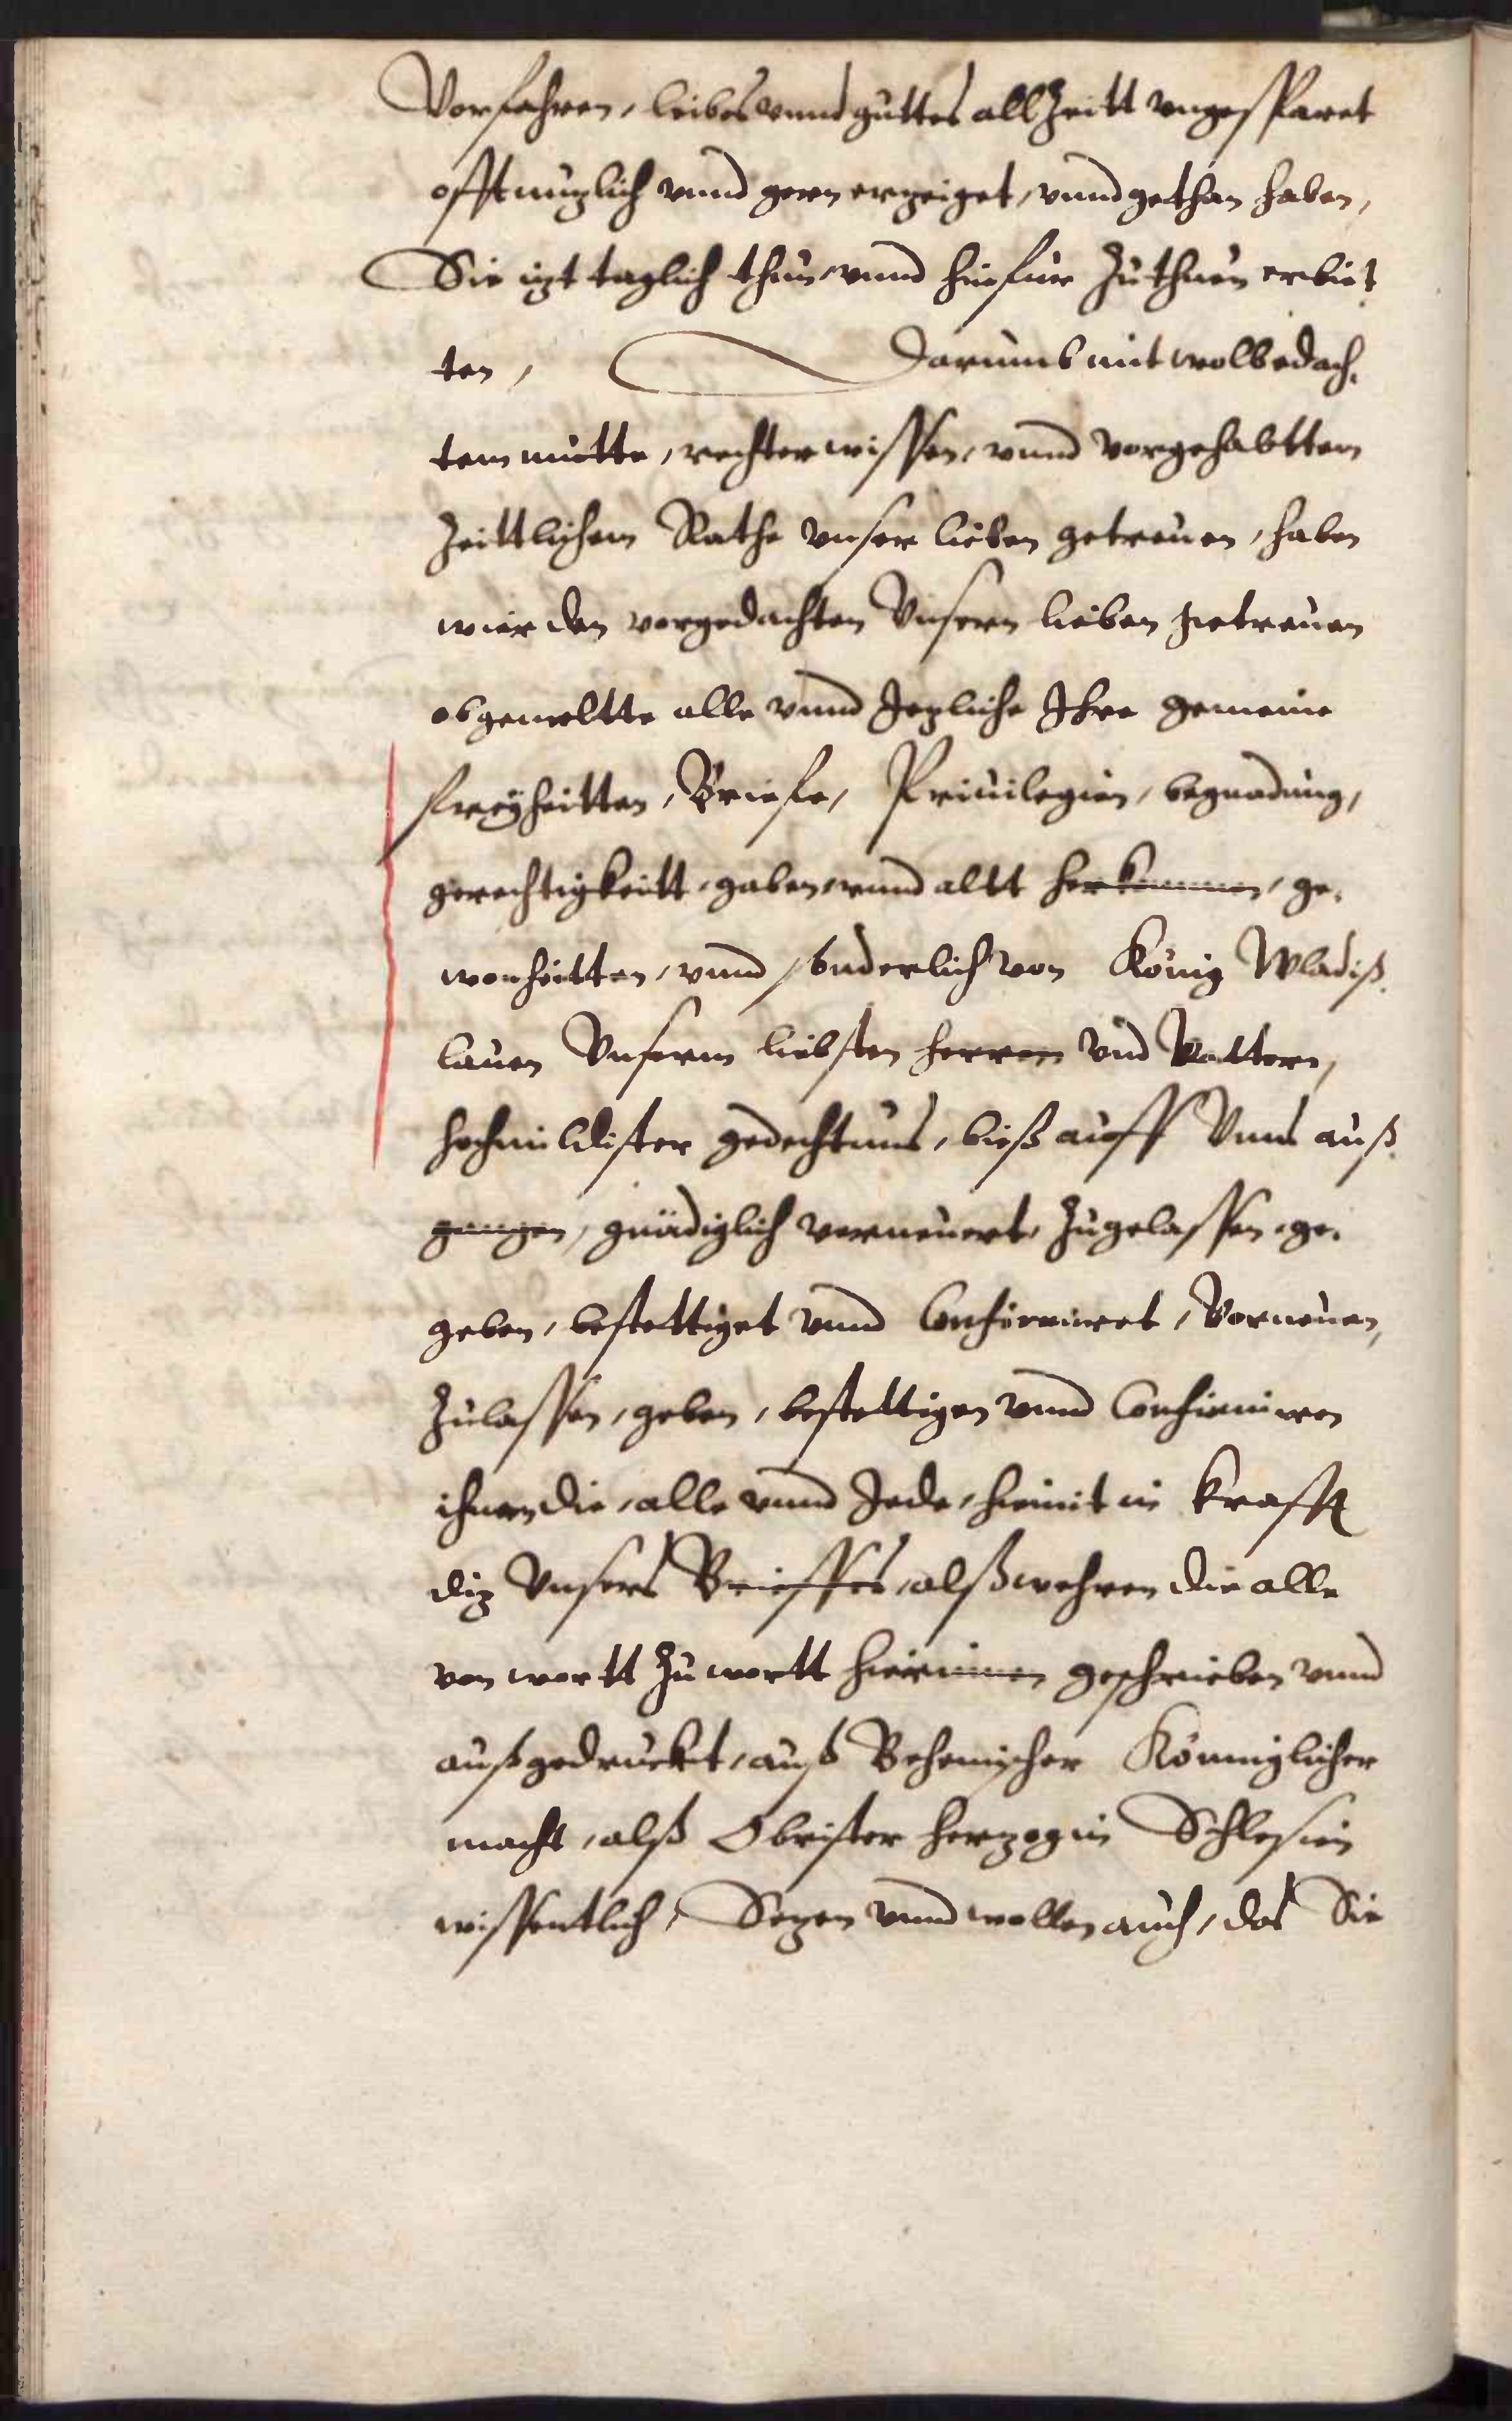 Vorfahren, leibes vnnd guttes allzeitt vngesparet
offt nuzlich vnnd gern erzeiget, vnnd gethan haben,
Sie izt taglich thun, vnnd hinfur zuthuen erbiet
ten, Darumb mit wolbedach,
tem mutte, rechter wissen, vnnd vorgehabttem
zeittlichem Rathe vnser lieben getreuen, haben
wier den vorgedachten Vnsern lieben getreuen
obgemeltte alle vnnd Jegliche Ihre gemeine
freyheitten, Briefe, Priuilegien, begnadung,
gerechtigkeitt, gaben, vnnd altt herkommen, ge,
wonheitten, vnnd sonderlich von König Wladiß,
lauen Vnserm liebsten herren vnd Vattern,
hochmildister gedechtnus, bieß auff Vnns auß,
gangen, gnädiglich verneuert, zugelassen, ge,
geben, bestettiget vnnd Confirmiret, Vorneuen,
zulassen, geben, bestettigen vnnd Confirmiren
ihnen die, alle vnnd Jede, hiemit in krafft
diz Vnsers Brieffes, alß wehren die alle
von wortt zu wortt hierinnen geschrieben vnnd
außgedruckt, auß Behemischer Könniglicher
macht, alß Obrister herzog in Schlesien
wissentlich, Sezen vnnd wollen auch, das Sie